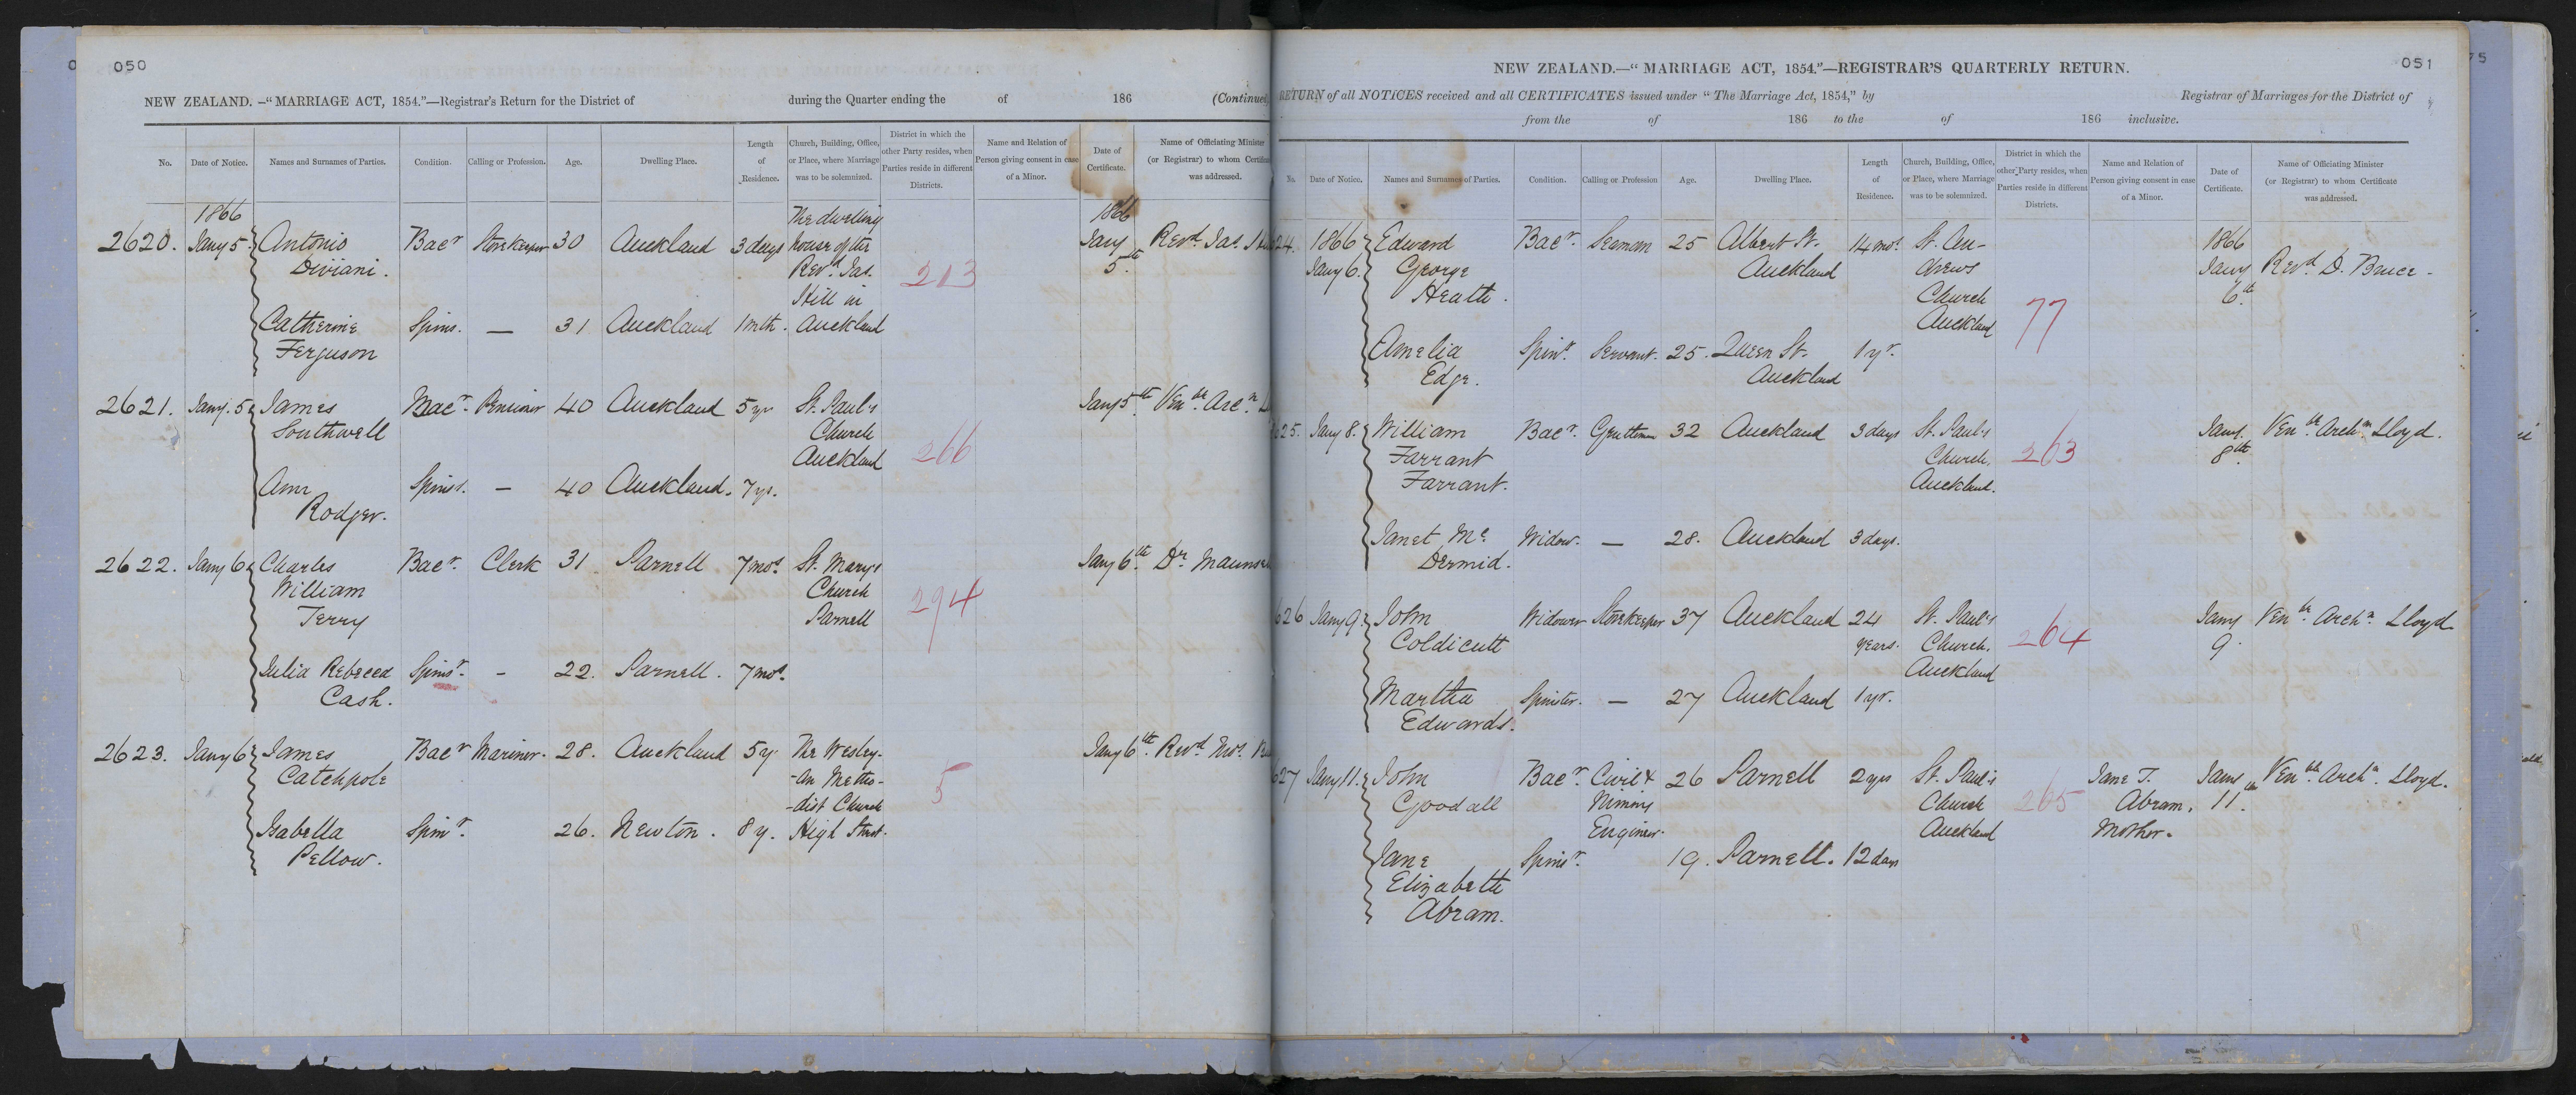 050
NEW ZEALAND. –"MARRIAGE ACT, 1854."—Registrar's Return for the District of during the Quarter ending the of 186 (Continued
No. Date of Notice. Names and Surnames of Parties. Condition. Calling or Profession. Age. Dwelling Place. Length of Residence. Church, Building, Office, or Place, where Marriage was to be solemnized. District in which the other Party resides, when Parties reside in different Districts. Name and Relation of Person giving consent in case of a Minor. Date of Certificate. Name of Officiating Minister (or Registrar) to whom Certificate was addressed.
1866 The dwelling 1866
2620. Jany 5. Antonio Bacr Storekeeper 30 Auckland 3 days house of the Jany Revd. Jas.
Diviani. Revd. Jas. 213 5th.
Hill in
Catherine Spins. — 31 Auckland 1 mth. Auckland
Ferguson
2621. Jany. 5 James Bacr. Pensioner 40 Auckland 5 yrs St. Paul's Jany 5th. Venble Arcn.
Southwell Church
Auckland 266
Ann Spinst. — 40 Auckland. 7 yr.
Rodger.
2622. Jany 6 Charles Bacr. Clerk 31 Parnell 7 mos. St. Mary's Jany 6th. Dr. Maunse
William Church 294
Terry Parnell
Julia Rebecca Spinsr. - 22. Parnell. 7 mos.
Cash.
2623. Jany 6 James Bacr Mariner. 28. Auckland 5 y. The Wesley- Jany 6th. Revd. Thos.
Catchpole -an Metho- 5
-dist Church
Isabella Spinr. 26. Newton. 8 y. High Street.
Pellow.
051
NEW ZEALAND.—"MARRIAGE ACT, 1854."—REGISTRAR'S QUARTERLY RETURN.
RETURN of all NOTICES received and all CERTIFICATES issued under "The Marriage Act, 1854," by Registrar of Marriages for the District of
from the of 186 to the of 186 inclusive.
No. Date of Notice. Names and Surnames of Parties. Condition. Calling or Profession Age. Dwelling Place. Length of Residence. Church, Building, Office, or Place, where Marriage was to be solemnized. District in which the other Party resides, when Parties reside in different Districts. Name and Relation of Person giving consent in case of a Minor. Date of Certificate. Name of Officiating Minister (or Registrar) to whom Certificate was addressed.
24. 1866 Edward Bacr. Seaman 25 Albert St. 14 mos. St. An- 1866
Jany 6. George Auckland drews Jany Revd. D. Bruce -
Heath. Church 77 6th.
Auckland
Amelia Spinr. Servant. 25. Queen St. 1 yr.
Edge. Auckland
625. Jany 8. William Bacr. Gentleman 32 Auckland 3 days St. Paul's Jany. Venble Archn. Lloyd.
Farrant Church, 263 8th.
Farrant. Auckland.
Janet Mc Widow. — 28. Auckland 3 days.
Dermid.
626 Jany 9. John Widower Storekeeper 37 Auckland 24 St. Paul's Jany Venble. Archn. Lloyd
Coldicutt years. Church, 264 9.
Auckland
Martha Spinster. — 27 Auckland 1 yr.
Edwards.
627 Jany 11. John Bacr. Civil & 26 Parnell 2 yrs St. Paul's Jane T. Jany Venble. Archn. Lloyd.
Goodall Mining Church 265 Abram, 11th.
Engineer. Auckland Mother.
Jane Spinsr. 19. Parnell. 12 days
Elizabeth
Abram.
75